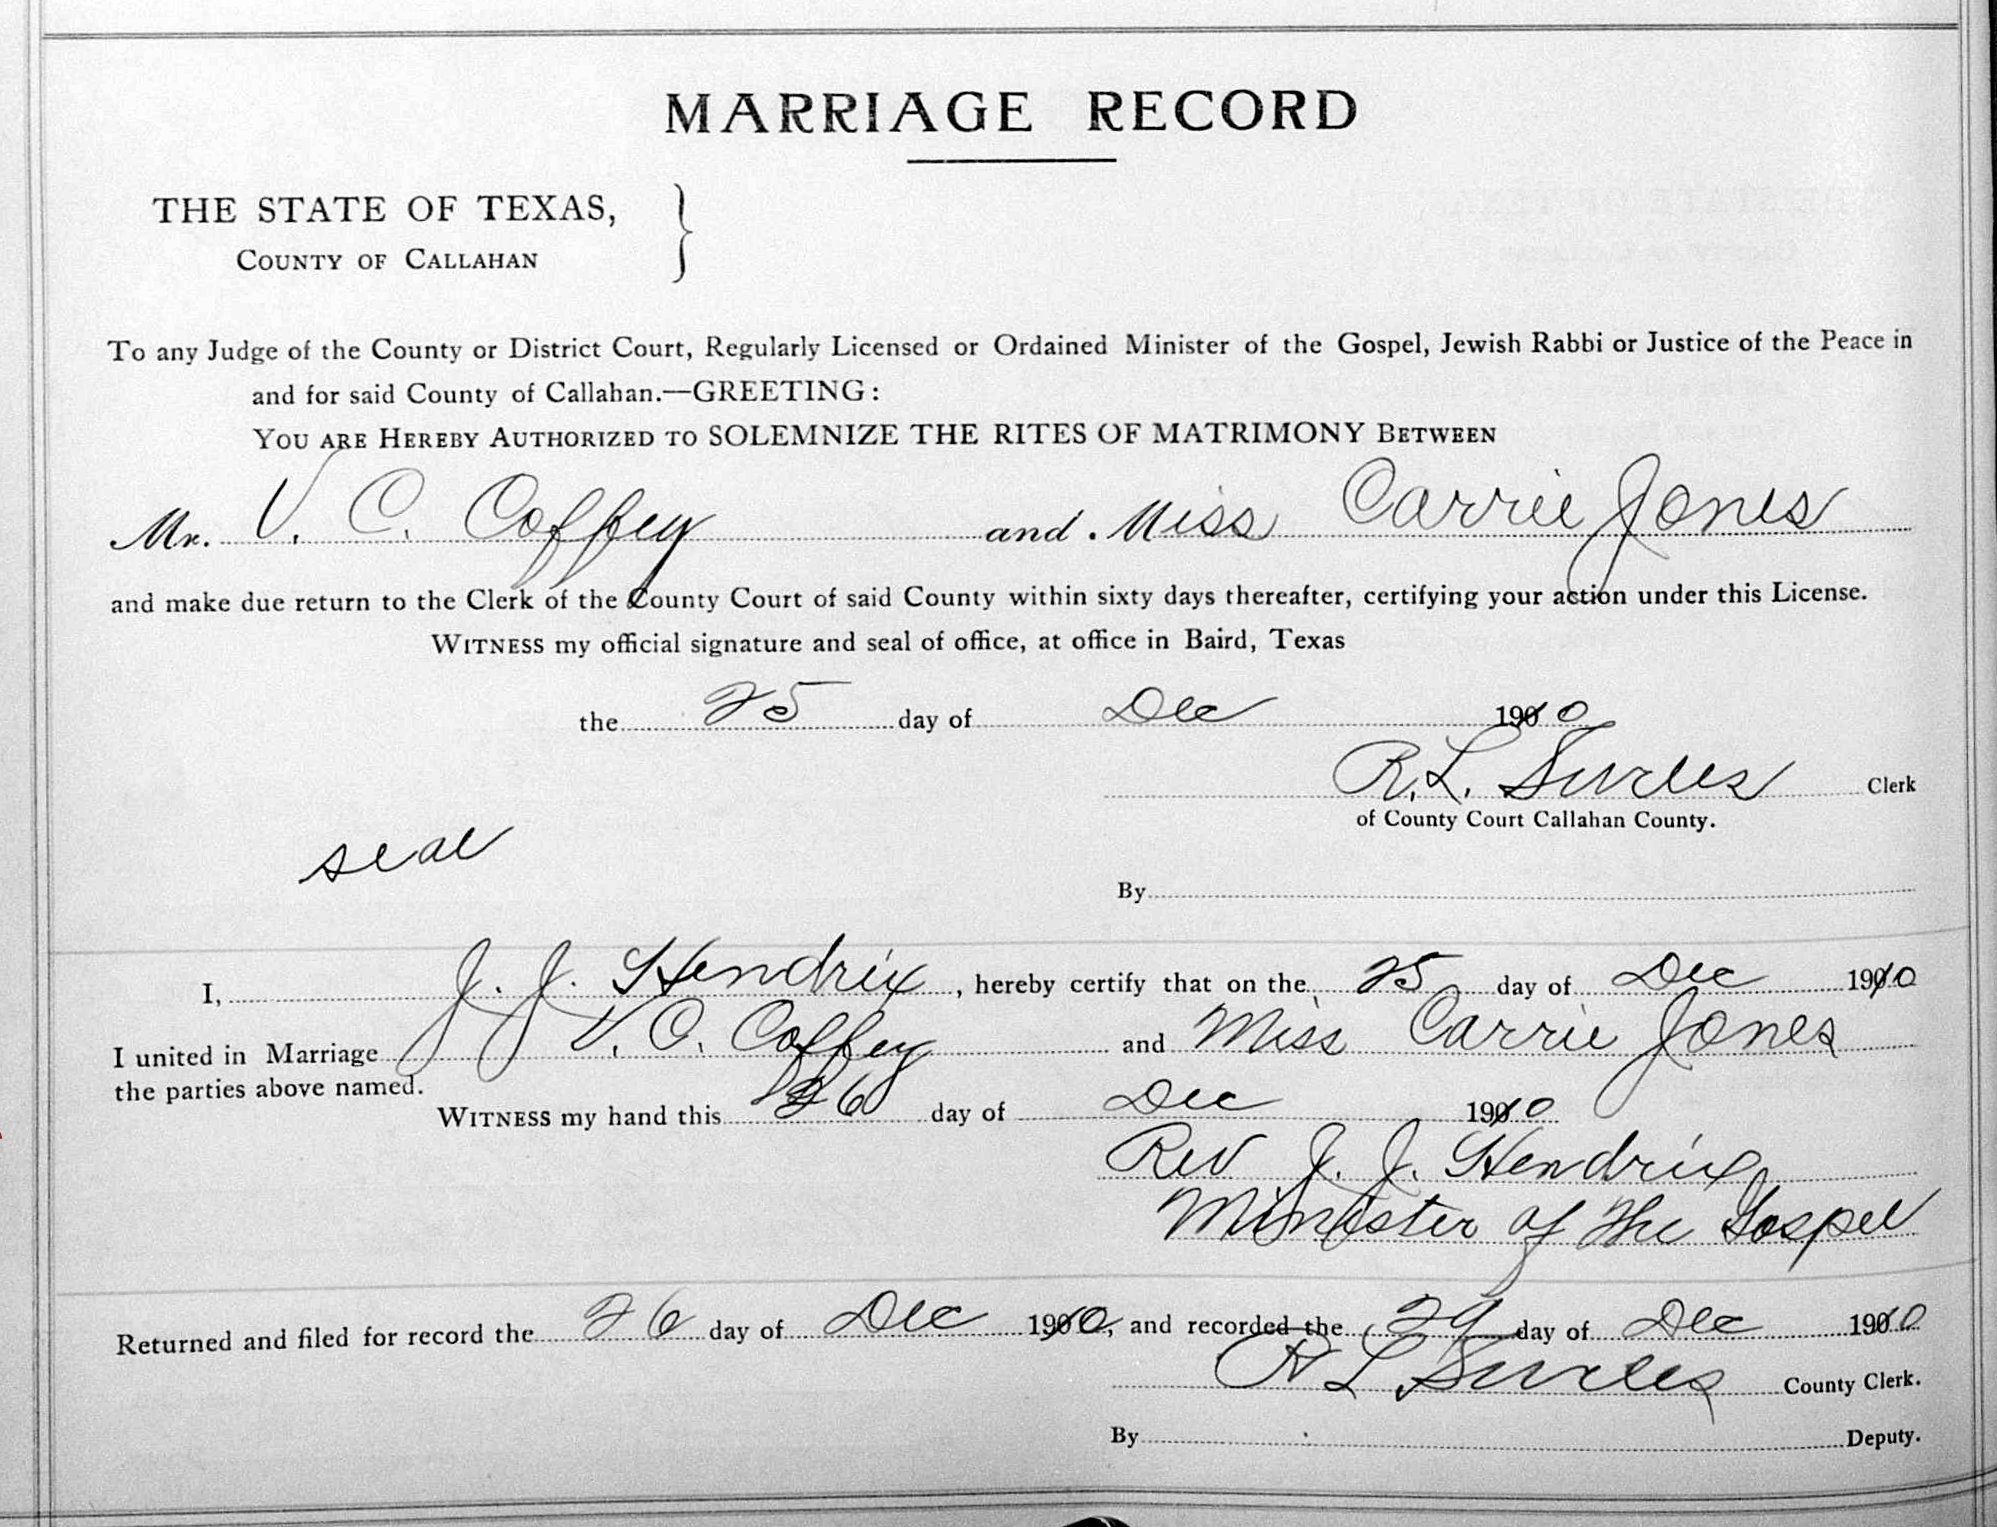 MARRIAGE RECORD
THE STATE OF TEXAS,
COUNTY OF CALLAHAN
To any Judge of the County or District Court, Regularly Licensed or Ordained Minister of the Gospel, Jewish Rabbi or Justice of the Peace in
and for said County of Callahan.—GREETING:
YOU ARE HEREBY AUTHORIZED TO SOLEMNIZE THE RITES OF MATRIMONY BETWEEN
Mr. V. C. Coffey and Miss Carrie Jones
and make due return to the Clerk of the County Court of said County within sixty days thereafter, certifying your action under this License.
WITNESS my official signature and seal of office, at office in Baird, Texas
the 25 day of Dec 1910
R. L. Surles Clerk
of County Court Callahan County.
seal
By
I, J. J. Hendrix, hereby certify that on the 25 day of Dec 1910
I united in Marriage V. C. Coffey and Miss Carrie Jones
the parties above named.
WITNESS my hand this 26 day of Dec 1910
Rev J. J. Hendrix
Minister of the Gospel
Returned and filed for record the 26 day of Dec 1910, and recorded the 29 day of Dec 1910
R L Surles County Clerk.
By Deputy.